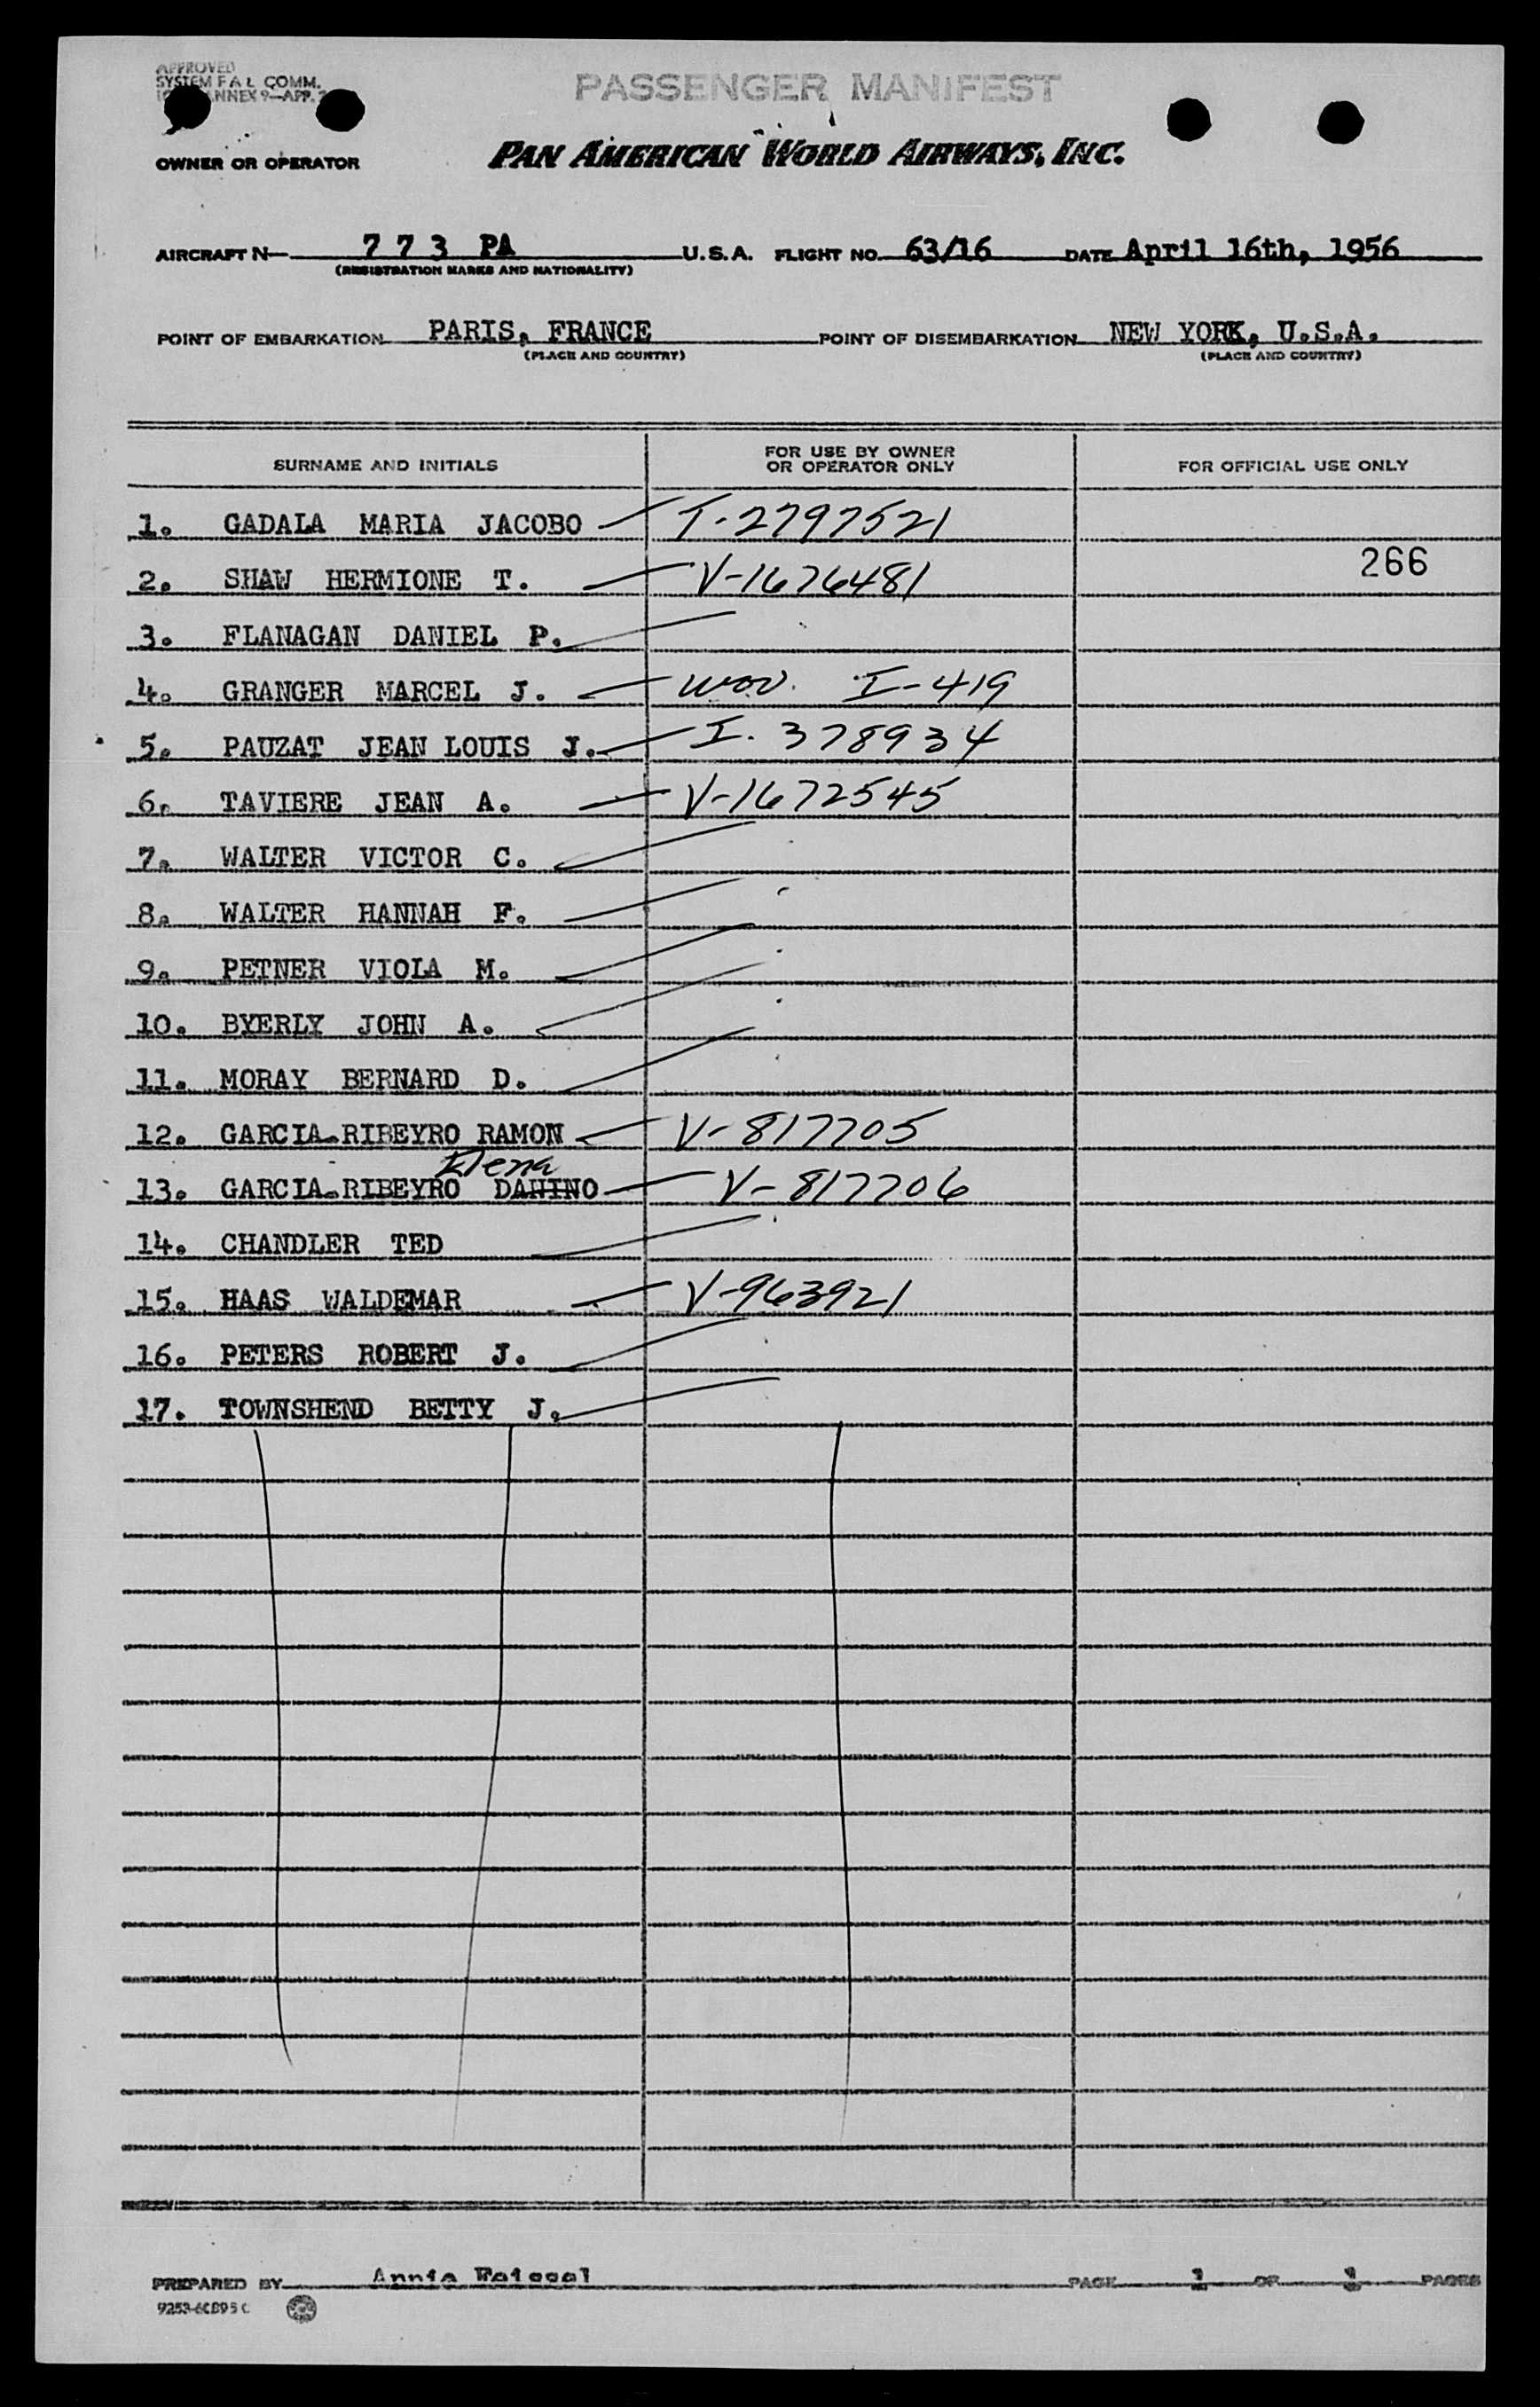 APPROVED
SYSTEM F A L COMM.
ANNEX 9—APP.
PASSENGER MANIFEST
OWNER OR OPERATOR PAN AMERICAN WORLD AIRWAYS, INC.
AIRCRAFT N— 7 7 3 PA U.S.A. FLIGHT NO. 63/16 DATE April 16th, 1956
(REGISTRATION MARKS AND NATIONALITY)
POINT OF EMBARKATION PARIS, FRANCE POINT OF DISEMBARKATION NEW YORK, U.S.A.
(PLACE AND COUNTRY) (PLACE AND COUNTRY)
SURNAME AND INITIALS FOR USE BY OWNER OR OPERATOR ONLY FOR OFFICIAL USE ONLY
1. GADALA MARIA JACOBO T-2797521
2. SHAW HERMIONE T. V-1676481 266
3. FLANAGAN DANIEL P.
4. GRANGER MARCEL J. I-419
5. PAUZAT JEAN LOUIS J. I. 378934
6. TAVIERE JEAN A. V-1672545
7. WALTER VICTOR C.
8. WALTER HANNAH F.
9. PETNER VIOLA M.
10. BYERLY JOHN A.
11. MORAY BERNARD D.
12. GARCIA-RIBEYRO RAMON V-817705
Elena
13. GARCIA-RIBEYRO DAHINO V-817706
14. CHANDLER TED
15. HAAS WALDEMAR V-963921
16. PETERS ROBERT J.
17. TOWNSHEND BETTY J.
PREPARED BY Annie PAGE 1 OF 1 PAGES